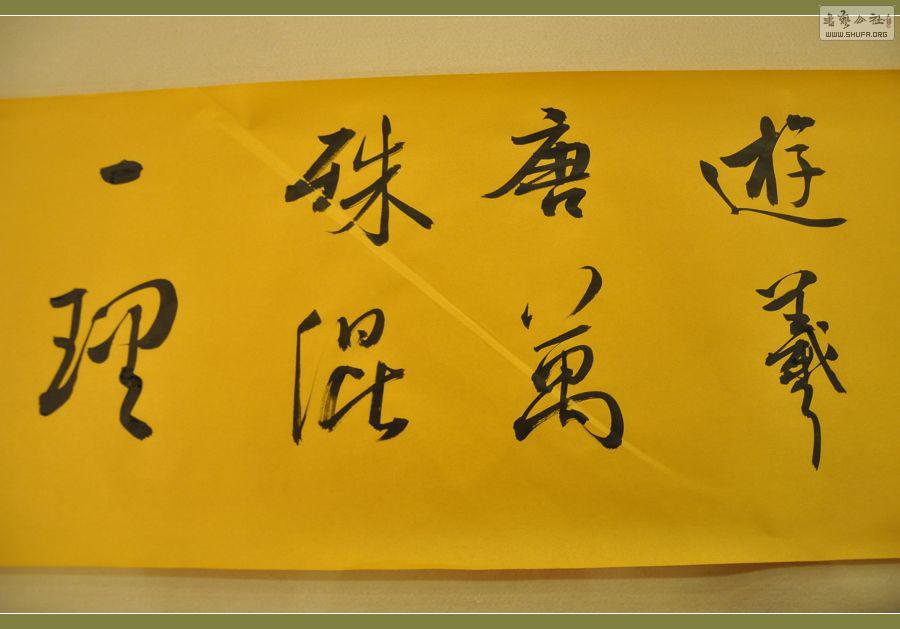 遊羲
唐萬
殊混
一理
書藝公社
WWW.SHUFA.ORG